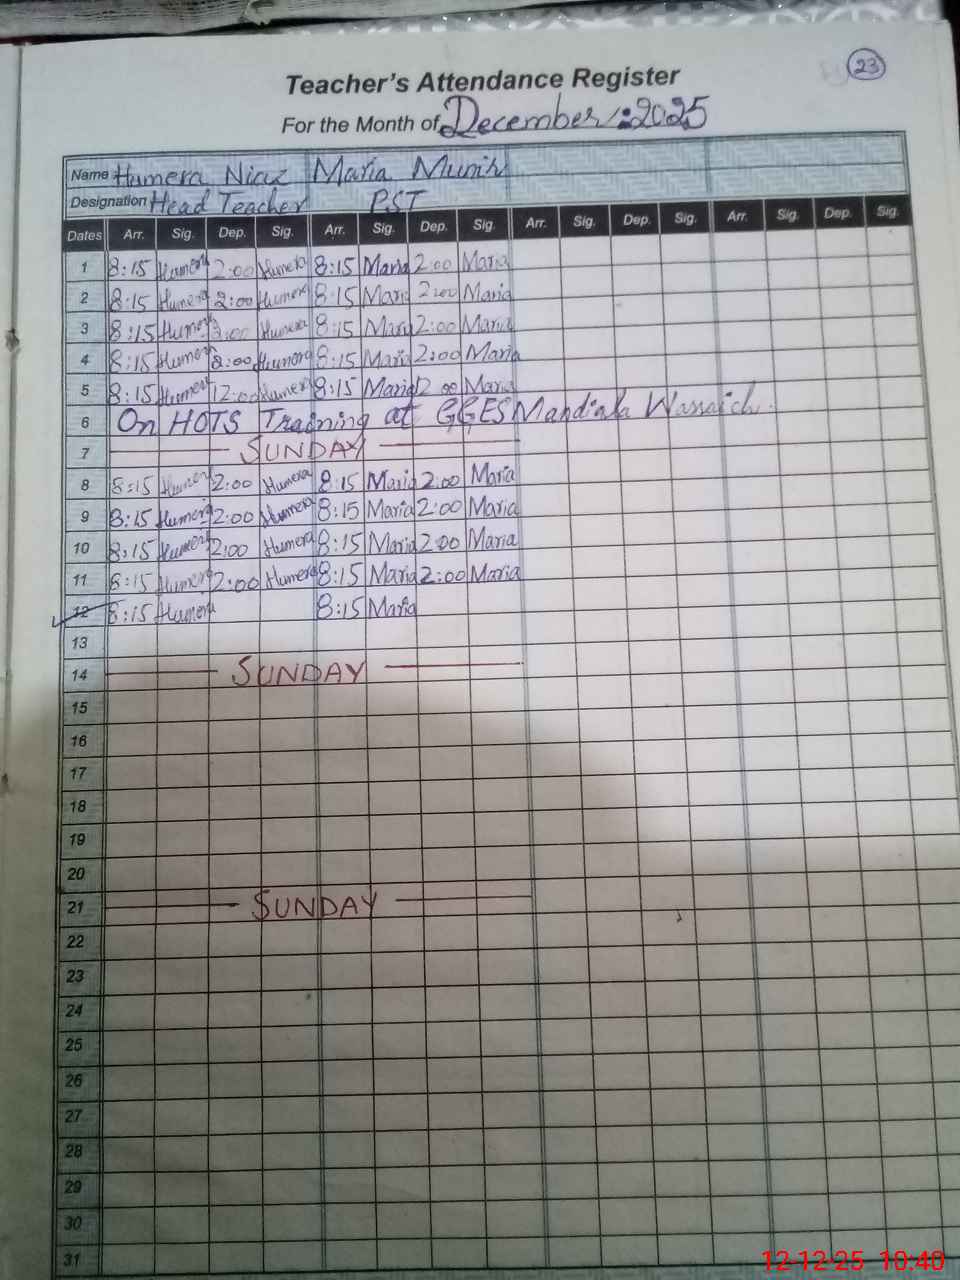 23
Teacher's Attendance Register
For the Month of December:2025
Name Humera Niaz Maria Munir
Designation Head Teacher PST
Dates Arr. Sig. Dep. Sig. Arr. Sig. Dep. Sig. Arr. Sig. Dep. Sig. Arr. Sig. Dep. Sig.
1 8:15 Humera 2:00 Humera 8:15 Maria 2:00 Maria
2 8:15 Humera 2:00 Humera 8:15 Maria 2:00 Maria
3 8:15 Humera 2:00 Humera 8:15 Maria 2:00 Maria
4 8:15 Humera 2:00 Humera 8:15 Maria 2:00 Maria
5 8:15 Humera 12:00 Humera 8:15 Maria 12 00 Maria
6 On HOTS Training at GGES Mandiala Warraich.
7 SUNDAY
8 8:15 Humera 2:00 Humera 8:15 Maria 2:00 Maria
9 8:15 Humera 2:00 Humera 8:15 Maria 2:00 Maria
10 8:15 Humera 2:00 Humera 8:15 Maria 2:00 Maria
11 8:15 Humera 2:00 Humera 8:15 Maria 2:00 Maria
12 8:15 Humera 8:15 Maria
13
14 SUNDAY
15
16
17
18
19
20
21 SUNDAY
22
23
24
25
26
27
28
29
30
31
12-12-25 10:40